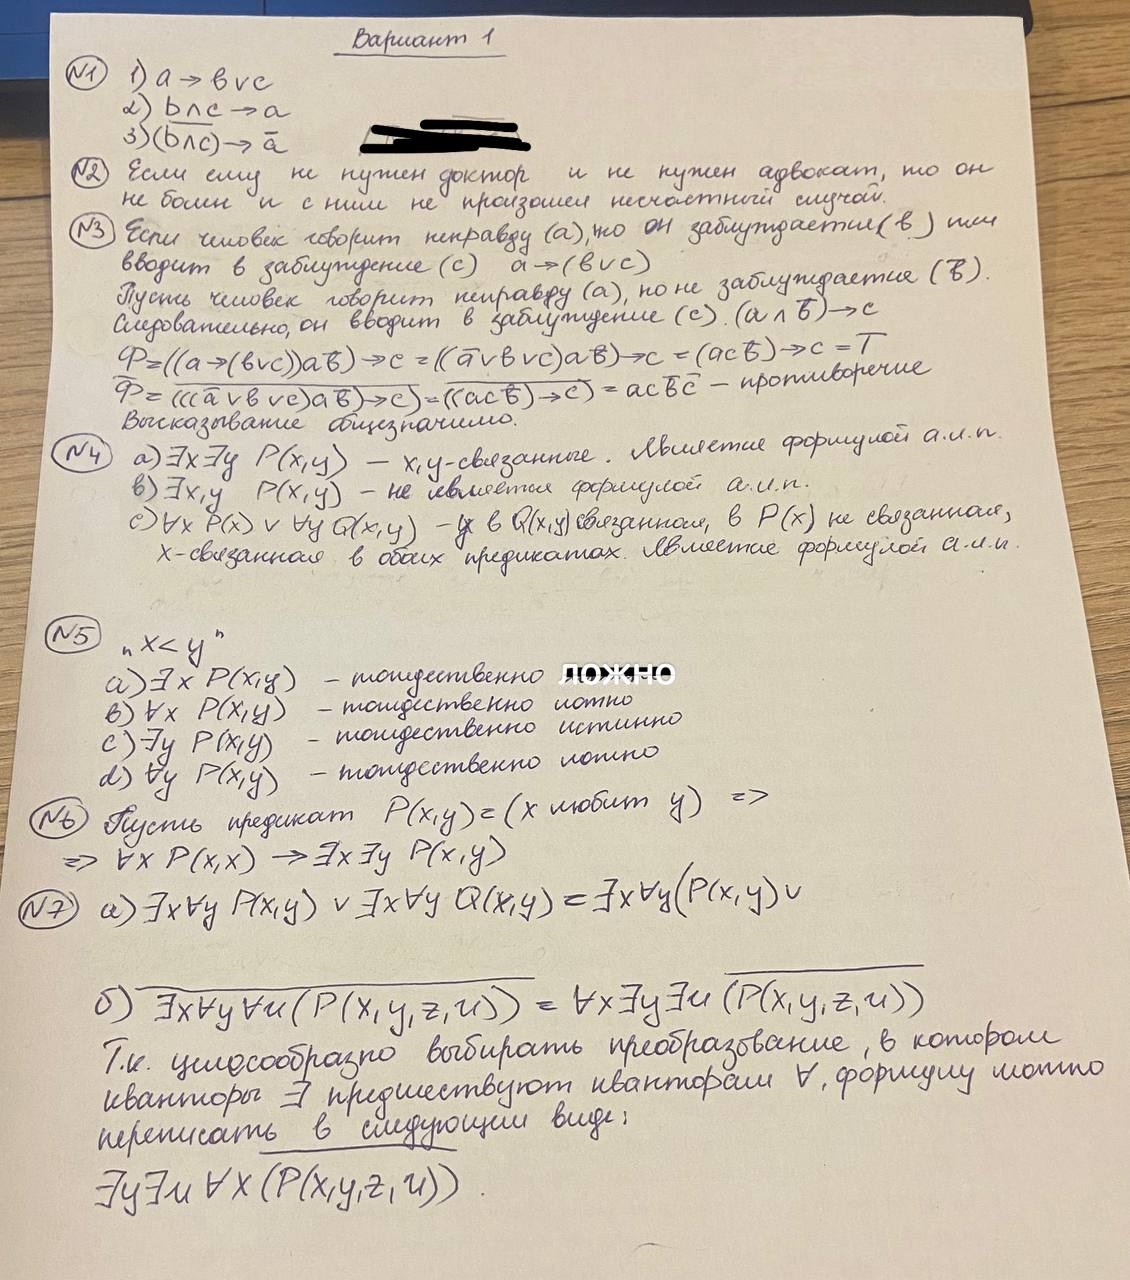 Вариант 1
№1 1) a → b ∨ c
2) b ∧ c → a
3) (b̅ ∧ c̅) → a̅
№2 Если ему не нужен доктор и не нужен адвокат, то он
не болен и с ним не произошел несчастный случай.
№3 Если человек говорит неправду (a), то он заблуждается (b) или
вводит в заблуждение (c) a → (b ∨ c)
Пусть человек говорит неправду (a), но не заблуждается (b̅).
Следовательно, он вводит в заблуждение (c). (a ∧ b̅) → c
Φ = ((a → (b ∨ c)) a b̅) → c = ((a̅ ∨ b ∨ c) a b̅) → c = (a c b̅) → c = T
Φ̅ = (((a̅ ∨ b ∨ c) a b̅) → c) = ((a c b̅) → c) = a c b̅ c̅ – противоречие
Высказывание общезначимо.
№4 a) ∃x∃y P(x,y) – x,y-связанные. Является формулой а.л.п.
b) ∃x,y P(x,y) – не является формулой а.л.п.
c) ∀x P(x) ∨ ∀y Q(x,y) – y в Q(x,y) связанная, в P(x) не связанная,
x-связанная в обоих предикатах. Является формулой а.л.п.
№5 „x < y"
a) ∃x P(x,y) – тождественно ложно
b) ∀x P(x,y) – тождественно ложно
c) ∃y P(x,y) – тождественно истинно
d) ∀y P(x,y) – тождественно ложно
№6 Пусть предикат P(x,y) = (x любит y) =>
=> ∀x P(x,x) → ∃x∃y P(x,y)
№7 a) ∃x∀y P(x,y) ∨ ∃x∀y Q(x,y) = ∃x∀y(P(x,y) ∨
б) ∃x∀y∀u(P(x,y,z,u)) = ∀x∃y∃u(P(x,y,z,u))
Т.к. целесообразно выбирать преобразование, в котором
кванторы ∃ предшествуют кванторам ∀, формулу можно
переписать в следующем виде:
∃y∃u∀x(P(x,y,z,u)).